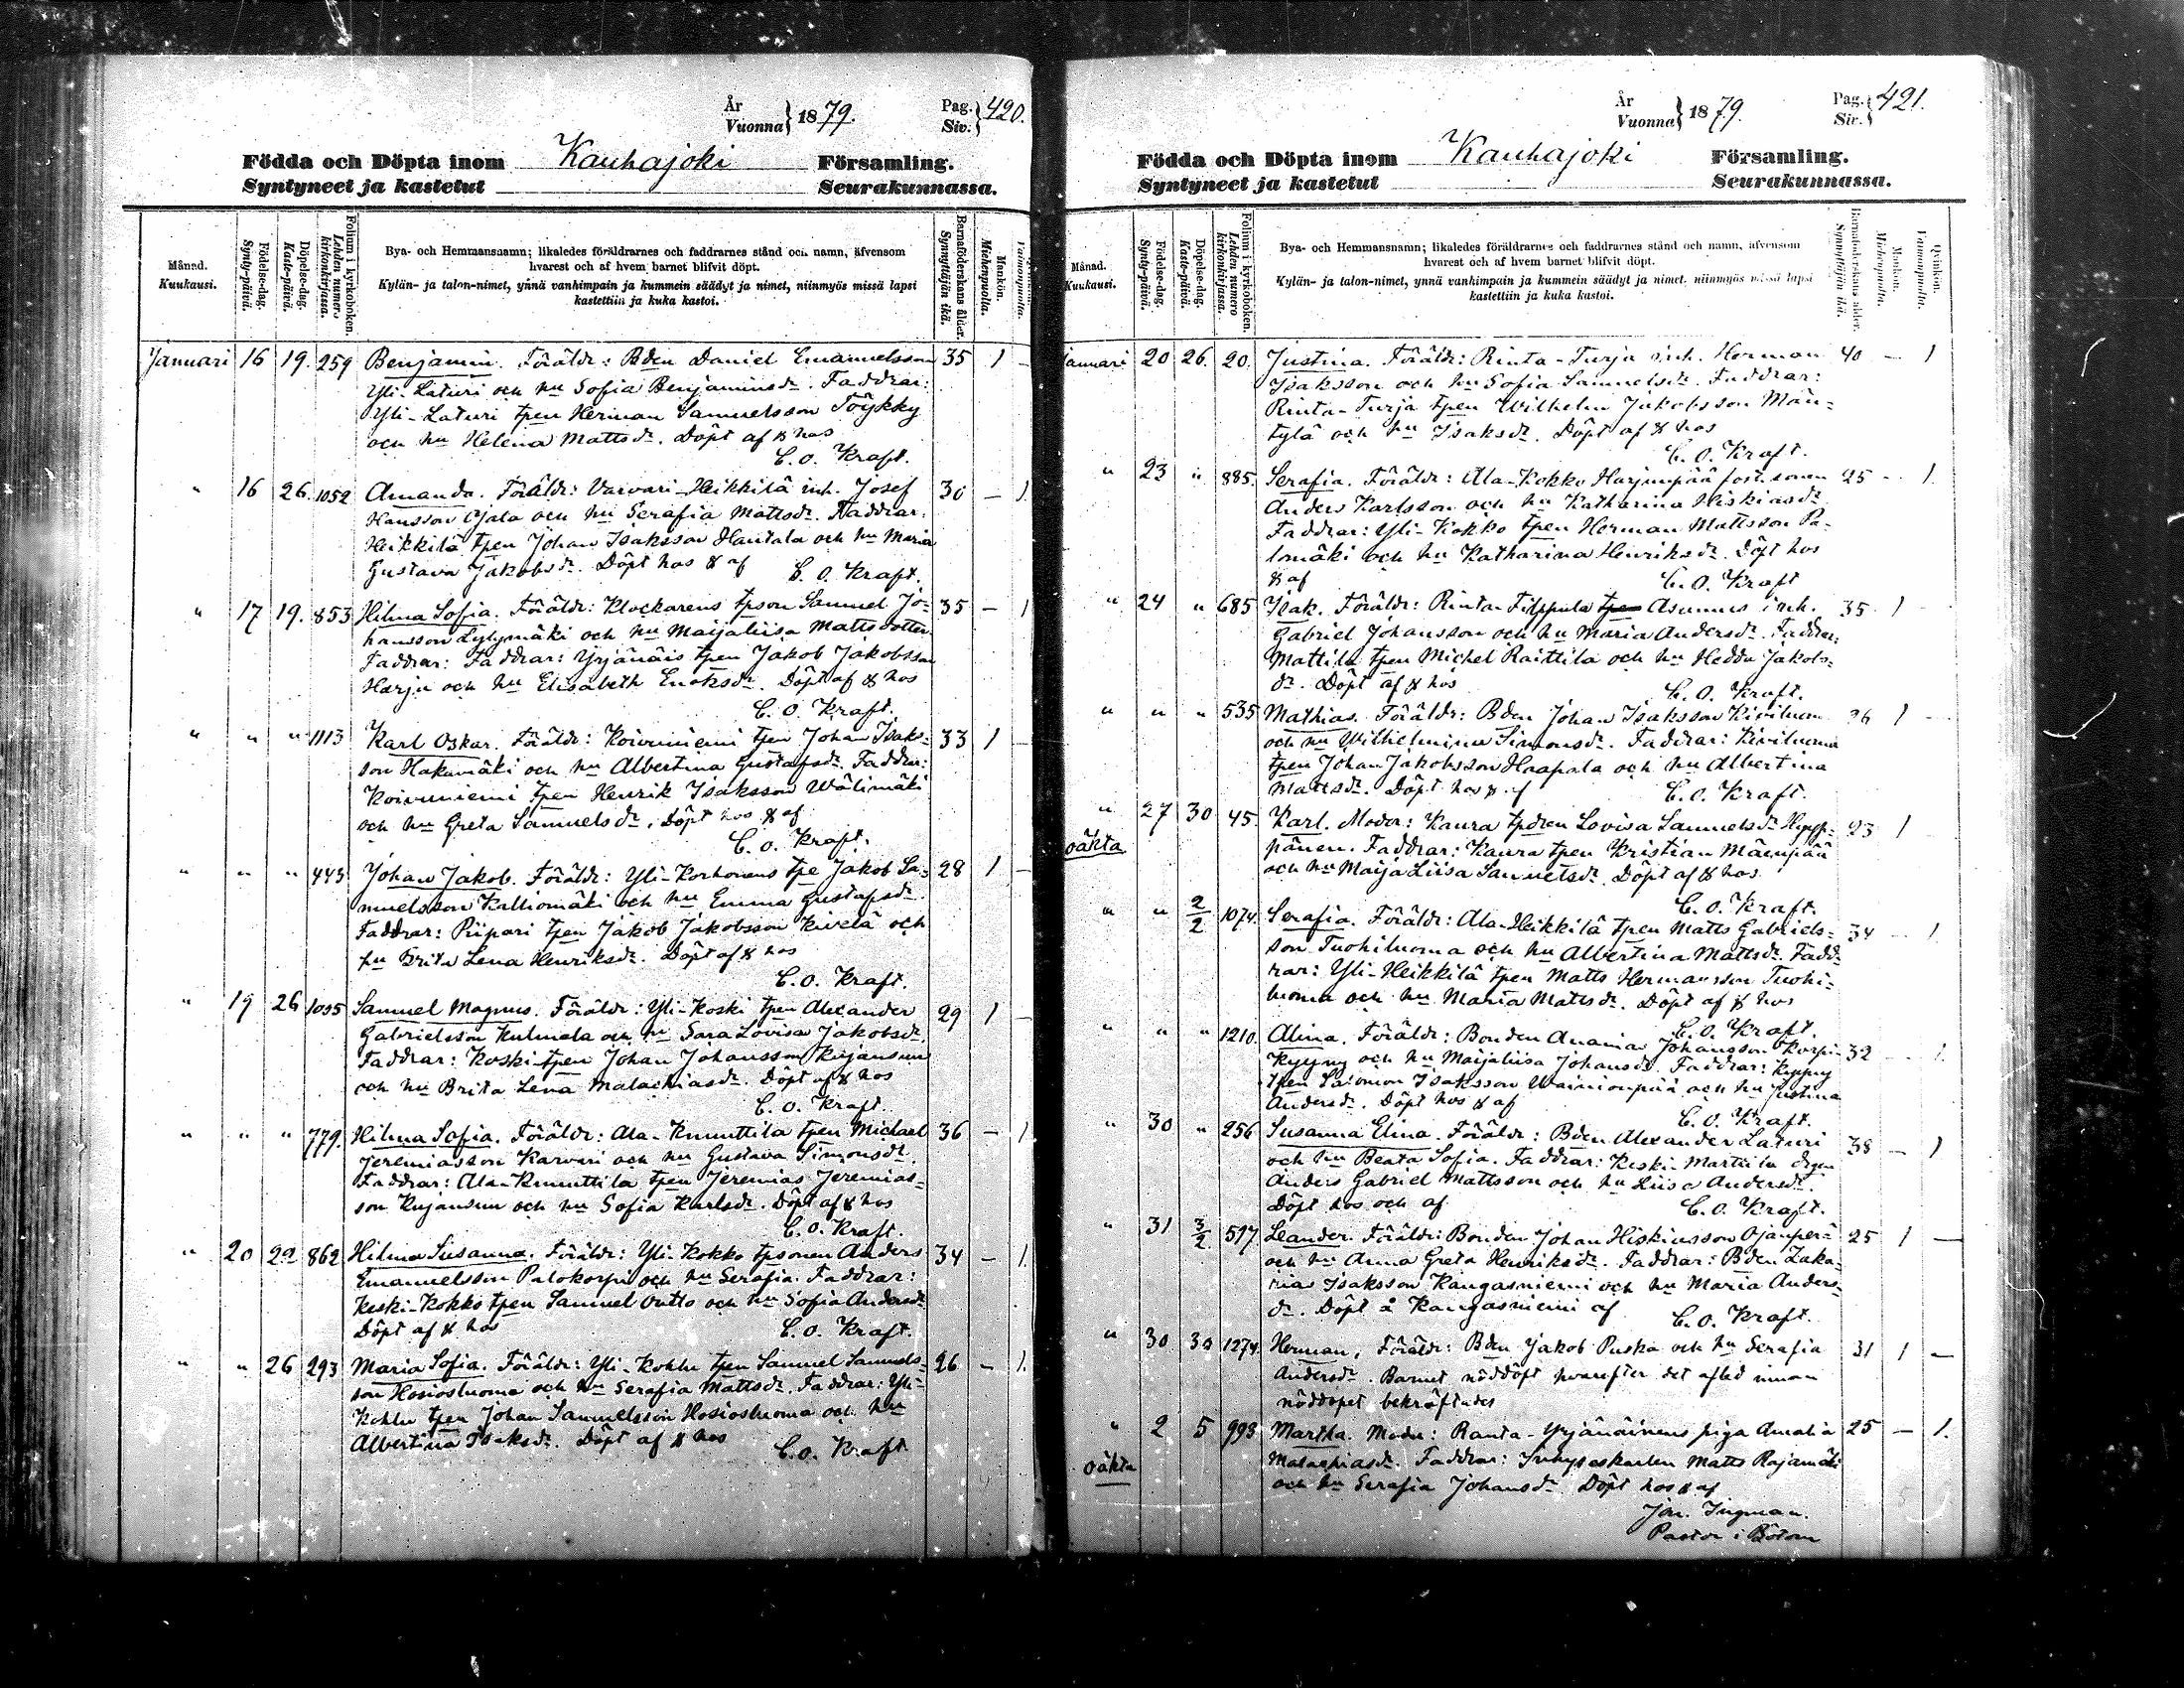 År
Vuonna } 1879.
Pag.
Siv. } 420.
Födda och Döpta inom Kauhajoki Församling.
Syntyneet ja kastetut Seurakunnassa.
Månad.
Kuukausi.
Födelse-dag.
Synty-päivä.
Döpelse-dag.
Kaste-päivä.
Folium i kyrkoboken.
Lehden numero kirkonkirjassa.
Bya- och Hemmansnamn; likaledes föräldrarnes och faddrarnes stånd och namn, äfvensom
hvarest och af hvem barnet blifvit döpt.
Kylän- ja talon-nimet, ynnä vanhimpain ja kummein säädyt ja nimet, niinmyös missä lapsi
kastettiin ja kuka kastoi.
Barnaföderskans ålder.
Synnyttäjän ikä.
Mankön.
Miehenpuolta.
Vaimonpuolta.
Januari 16 19. 259 Benjamin. Föräldr: Bden Daniel Emanuelsson 35 1 —
Yli-Laturi och hu Sofia Benjaminsdr. Faddrar:
Yli-Laturi tpen Herman Samuelsson Töykky
och hu Helena Mattsdr. Döpt af & hos
C. O. Kraft.
" 16 26. 1052 Amanda. Föräldr: Varvari-Heikkilä inh. Josef 30 — 1.
Hansson Ojala och hu Serafia Mattsdr. Faddrar:
Heikkilä tpen Johan Isaksson Hautala och hu Maria
Gustava Jakobsdr. Döpt hos & af
C. O. Kraft.
" 17 19. 853 Hilma Sofia. Föräldr: Klockarens tpson Samuel Jo- 35 — 1
hansson Lylymäki och hu Maijaliisa Mattsdotter
Faddrar: Faddrar: Yrjänäis tpen Jakob Jakobsson
Harju och hu Elisabeth Enoksdr. Döpt af & hos
C. O. Kraft.
" " " 1113 Karl Oskar. Föräldr: Koivuniemi tpen Johan Isaks- 33 1 —
son Hakamäki och hu Albertina Gustafsdr. Faddrar:
Koivuniemi tpen Henrik Isaksson Wälimäki
och hu Greta Samuelsdr. Döpt hos & af
C. O. Kraft.
" " " 443 Johan Jakob. Föräldr: Yli-Korhonens tpe Jakob Sa- 28 1 —
muelsson Kalliomäki och hu Emma Gustafsdr.
Faddrar: Piipari tpen Jakob Jakobsson Kivelä och
hu Brita Lena Henriksdr. Döpt af & hos
C. O. Kraft.
" 19 26 1035 Samuel Magnus. Föräldr: Yli-Koski tpen Alexander 29 1 —
Gabrielsson Kulmala och hu Sara Lovisa Jakobsdr.
Faddrar: Koski tpen Johan Johansson Kujansuu
och hu Brita Lena Malachiasdr. Döpt af & hos
C. O. Kraft.
" " " 779. Hilma Sofia. Föräldr: Ala-Knuuttila tpen Michael 36 — 1.
Jeremiasson Karvari och hu Gustava Simonsdr.
Faddrar: Ala-Knuuttila tpen Jeremias Jeremias-
son Kujansuu och hu Sofia Karlsdr. Döpt af & hos
C. O. Kraft.
" 20 22 862 Hilma Susanna. Föräldr: Yli-Kokko tpsonen Anders 34 — 1.
Emanuelsson Palokorpi och hu Serafia. Faddrar:
Keski-Kokko tpen Samuel Outto och hu Sofia Andersdr.
Döpt af & hos
C. O. Kraft.
" " 26 293 Maria Sofia. Föräldr: Yli-Kohlu tpen Samuel Samuels- 26 — 1.
son Hosiosluoma och hu Serafia Mattsdr. Faddrar: Yli-
Kohlu tpen Johan Samuelsson Hosiosluoma och hu
Albertina Isaksdr. Döpt af & hos
C. O. Kraft
År
Vuonna } 1879.
Pag.
Siv. } 421.
Födda och Döpta inom Kauhajoki Församling.
Syntyneet ja kastetut Seurakunnassa.
Månad.
Kuukausi.
Födelse-dag.
Synty-päivä.
Döpelse-dag.
Kaste-päivä.
Folium i kyrkoboken.
Lehden numero kirkonkirjassa.
Bya- och Hemmansnamn; likaledes föräldrarnes och faddrarnes stånd och namn, äfvensom
hvarest och af hvem barnet blifvit döpt.
Kylän- ja talon-nimet, ynnä vanhimpain ja kummein säädyt ja nimet, niinmyös missä lapsi
kastettiin ja kuka kastoi.
Barnaföderskans ålder.
Synnyttäjän ikä.
Mankön.
Miehenpuolta.
Qvinkön.
Vaimonpuolta.
Januari 20 26. 20. Justina. Föräldr: Rinta-Turja inh. Herman 40 — 1
Isaksson och hu Sofia Samuelsdr. Faddrar:
Rinta-Turja tpen Wilhelm Jakobsson Män-
tylä och hu Isaksdr. Döpt af & hos
C. O. Kraft.
" 23 " 885. Serafia. Föräldr: Ala-Kokko Harjunpää fost.sonen 25 — 1.
Anders Karlsson och hu Katharina Hiskiasdr.
Faddrar: Yli-Kokko tpen Herman Mattsson Pa-
lomäki och hu Katharina Henriksdr. Döpt hos
& af
C. O. Kraft
" 24 " 685 Isak. Föräldr: Rinta-Filppula tpen Asunmes inh. 35 1
Gabriel Johansson och hu Maria Andersdr. Faddrar:
Mattila tpen Michel Raittila och hu Hedda Jakobs-
dr. Döpt af & hos
C. O. Kraft.
" " " 535 Mathias. Föräldr: Bden Johan Isaksson Kiviluoma 26 1 —
och hu Wilhelmina Simonsdr. Faddrar: Kiviluoma
tpen Johan Jakobsson Haapala och hu Albertina
Mattsdr. Döpt hos & af
C. O. Kraft.
" 27 30 45. Karl. Moder: Kaura tpdren Lovisa Samuelsdr 23 1
oäkta
pänen. Faddrar: Kaura tpen Kristian Mäenpää
och hu Maija Liisa Samuelsdr. Döpt af & hos
C. O. Kraft.
" " 2/2 1074. Serafia. Föräldr: Ala-Heikkilä tpen Matts Gabriels- 34 — 1
son Tuohiluoma och hu Albertina Mattsdr. Fadd-
rar: Yli-Heikkilä tpen Matts Hermansson Tuohi-
luoma och hu Maria Mattsdr. Döpt af & hos
C. O. Kraft.
" " " 1210. Alina. Föräldr: Bonden Ananias Johansson Korpi- 32 — 1.
Kyyny och hu Maijaliisa Johansdr. Faddrar: Kyyny
tpen Salomon Isaksson Wainionpää och hu Justina
Andersdr. Döpt hos & af
C. O. Kraft.
" 30 " 256 Susanna Elina. Föräldr: Bden Alexander Laturi 38 — 1
och hu Beata Sofia. Faddrar: Keski-Marttila
Anders Gabriel Mattsson och hu Liisa Andersdr.
Döpt hos och af
C. O. Kraft.
" 31 3/2 517 Leander. Föräldr: Bonden Johan Hiskiasson Ojanperä 25 1 —
och hu Anna Greta Henriksdr. Faddrar: Bden Zaka-
rias Isaksson Kangasniemi och hu Maria Anders-
dr. Döpt å Kangasniemi af
C. O. Kraft.
" 30 30 1274. Herman. Föräldr: Bden Jakob Puska och hu Serafia 31 1 —
Andersdr. Barnet nöddöpt hvarefter det afled innan
nöddopet bekräftades
" 2 5 998 Martha. Moder: Ranta-Yrjänäinens piga Amalia 25 — 1.
oäkta
Malakiasdr. Faddrar: Inhyseskarlen Matts Rajamäki
och hu Serafia Johansdr. Döpt hos & af
Joh. Ingman.
Pastor i Bötom